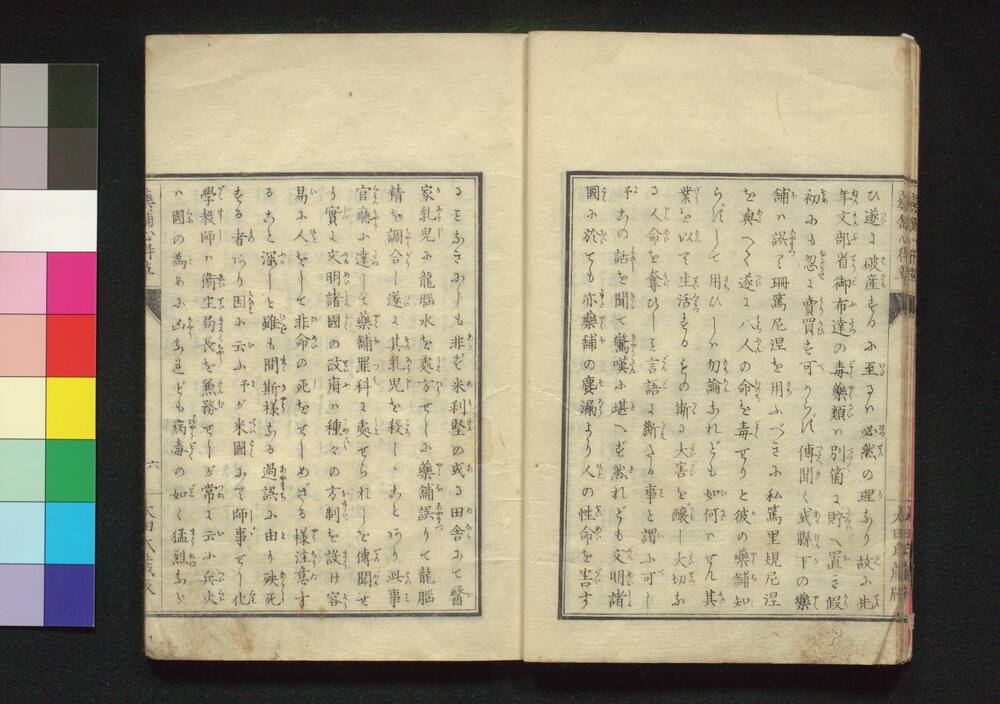 ひ遂に破産するに至るハ必然の理なり故に先
年文部省御布達の毒藥類ハ別箇に貯へ置き假
初にも忽に賣買す可からず傳聞く或縣下の藥
舗ハ誤て珊篤尼涅を用ふべきに私篤里規尼涅
を與へて遂に八人の命を毒せりと彼の藥舗知
らずして用ひしハ勿論なれども如何ハせん其
業を以て生活するもの斯る大害を釀し大切な
る人命を奪ひしを言語に斷たる事と謂ふ可し
予この話を聞て驚嘆に堪へず然れども文明諸
國に於ても亦藥舗の麁漏より人の性命を害す
るもなきにしも非ず米利堅の或る田舎にて醫
家乳児に龍腦水を処方せしに藥舗誤りて龍腦
精を調合し遂に其乳児を殺しゝことあり此事
官廳に達して藥舗罪科に處せられしを傳聞せ
り實に文明諸國の政府ハ種々の方制を設け容
易に人をして非命の死をせしめざる様注意す
ること深しと雖も間斯様なる過誤に由り殃死
する者あり因に云ふ予が米國にて師事せし化
學教師ハ衛生局長を兼務せしが常に云ふ兵火
ハ國の為めに凶なれども病毒の如く猛烈なら
六